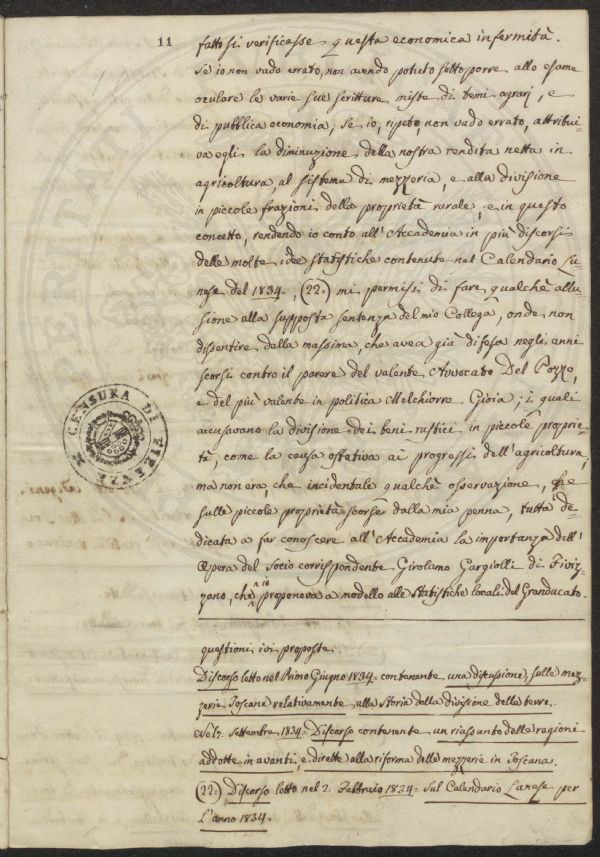 11
fatto si verificasse questa economica infermità.
Se io non vado errato, non avendo potuto sottoporre allo esame
oculare le varie sue scritture, miste di temi agrarj, e
di pubblica economia; Se io, ripeto, non vado errato, attribui=
va egli la diminuzione della nostra rendita netta in
agricoltura, al sistema di mezzeria, e alla divisione
in piccole frazioni della proprietà rurale; e in questo
concetto, rendendo io conto all'Accademia in più discorsi
delle molte idee Statistiche contenute nel Calendario Lu=
nese del 1834, (22.) mi permisi di fare qualche allu=
sione alla supposta sentenza del mio Collega, onde non
dissentire dalla massima, che avea già difesa negli anni
scorsi contro il parere del valente Avvocato Del Pozzo,
e del più valente in politica Melchiorre Gioia; i quali
accusavano la divisione dei beni rustici in piccole proprie=
tà, come la causa ostativa ai progressi dell'agricoltura,
ma non era, che incidentale qualche osservazione,
sulle piccole proprietà scorsa dalla mia penna, tutta de=
dicata a far conoscere all'Accademia la importanza dell'
Opera del Socio corrispondente Girolamo Gargiolli di Fiviz=
zano, che io proponeva a modello alle Statistiche locali del Granducato.
questioni ivi proposte.
Discorso letto nel Primo Giugno 1834 = contenante una discussione, sulle mez=
zerie Toscane relativamente alla Storia della divisione delle terre.
Nel 7. Settembre 1834 = Discorso contenente un riassunto delle ragioni
addotte in avanti, e dirette alla riforma delle mezzerie in Toscana.
(22.) Discorso letto nel 2. Febbraio 1834 = Sul Calendario Lunese per
l'anno 1834.
CENSURA DI FIRENZE